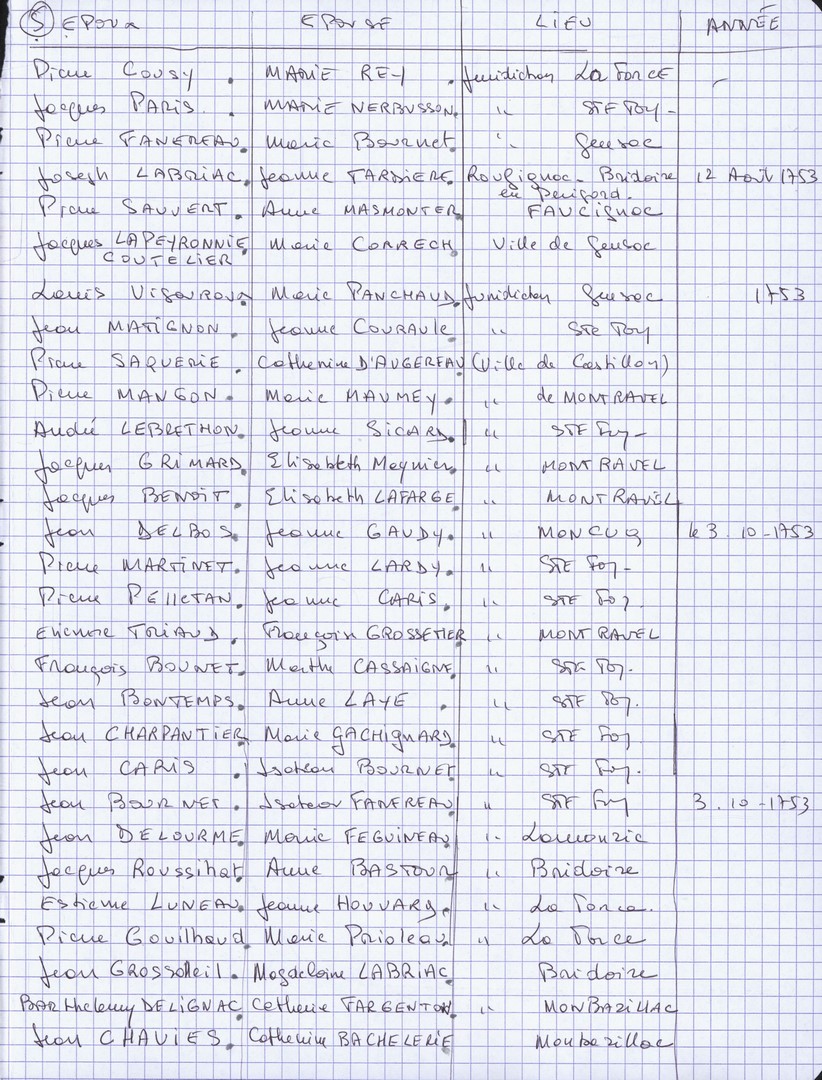 5 EPOUX EPOUSE LIEU ANNÉE
Pierre COUSY. MARIE REY. Juridiction LA FORCE
Jacques PARIS. MARIE NERBUSSON. " STE FOY-
Pierre FANEREAU. Marie Bournet. " Gensac
Joseph LABRIAC. Jeanne TARDIERE. Roufignac-Bridoire 12 Août 1753
en Périgord.
Pierre SAUVERT. Anne MASMONTER FAUCIGNAC
Jacques LAPEYRONNIE Marie CORRECH Ville de Gensac
COUTELIER
Louis VIGOUROUX Marie PANCHAUD. Juridiction Gensac 1753
Jean MATIGNON. Jeanne COURAULE " Ste Foy
Pierre SAQUERIE. Catherine D'AUGEREAU (Ville de Castillon)
Pierre MANGON. Marie MAUMEY. " de MONTRAVEL
André LEBRETHON. Jeanne SICARD. " STE Foy-
Jacques GRIMARD. Elisabeth Meynier. " MONTRAVEL
Jacques BENOÎT. Elisabeth LAFARGE " MONTRAVEL
Jean DELBOS. Jeanne GAUDY. " MONCUQ le 3.10-1753
Pierre MARTINET. Jeanne LARDY. " STE Foy-
Pierre PEllETAN. Jeanne CARIS. " STE Foy.
Etienne TRIAUD. Françoise GROSSETIER " MONTRAVEL
François BOUNET. Marthe CASSAIGNE. " STE Foy.
Jean BONTEMPS. Anne LAYE. " STE Foy.
Jean CHARPANTIER. Marie GACHIGNARD. " STE Foy
Jean CARIS. Isabeau BOURNET " STE Foy.
Jean BOURNET. Isabeau FANEREAU " STE Foy 3.10-1753
Jean DELOURME. Marie FEGUINEAU " Lamonzie
Jacques Roussihat. Anne BASTOUR " Bridoire
Estienne LUNEAU. Jeanne HOUVARD. " La Force.
Pierre Gouilhaud. Marie Prioleau " La Force
Jean GROSSOLeil. Magdelaine LABRIAC Bridoire
BARThelemy DELIGNAC. Catherine TARGENTON. " MONBAZILLAC
Jean CHAVIES. Catherine BACHELERIE Monbazillac